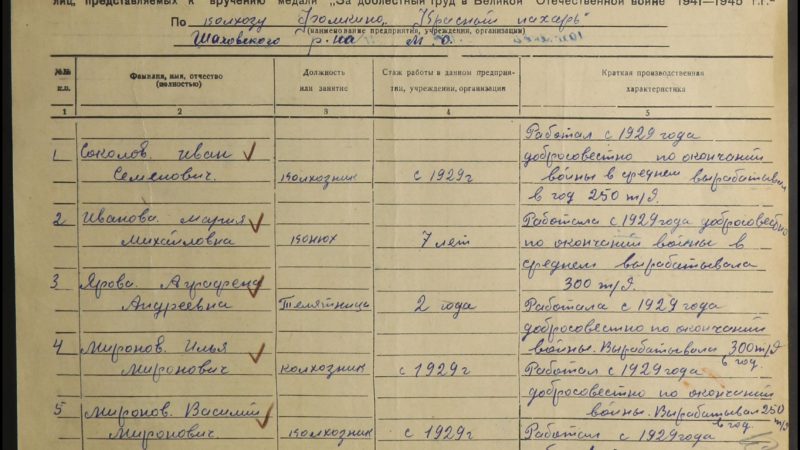 лиц, представляемых к вручению медали „За доблестный труд в Великой Отечественной войне 1941—1945 г.г.“
По колхозу Фомкино „Красный пахарь“
(наименование предприятия, учреждения, организации)
Шаховского р-на М.О.
№№ п.п.
Фамилия, имя, отчество (полностью)
Должность или занятие
Стаж работы в данном предприятии, учреждении, организации
Краткая производственная характеристика
1 2 3 4 5
1 Соколов Иван Семенович. колхозник с 1929г Работал с 1929 года
добросовестно по окончаний
войны в среднем вырабатывал
в год 250 т/д.
2 Иванова Мария Михайловна конюх 7 лет Работала с 1929 года добросовестно
по окончаний войны в
среднем вырабатывала
300 т/д.
3 Ярова Аграфена Андреевна Телятница 2 года Работала с 1929 года
добросовестно по окончаний
войны. Вырабатывала 300 т/д
в год.
4 Миронов. Илья Миронович колхозник с 1929г Работал с 1929 года
добросовестно по окончаний
войны. Вырабатывал 250 т/д
в год.
5 Миронов. Василий Миронович. колхозник с 1929г Работал с 1929 года